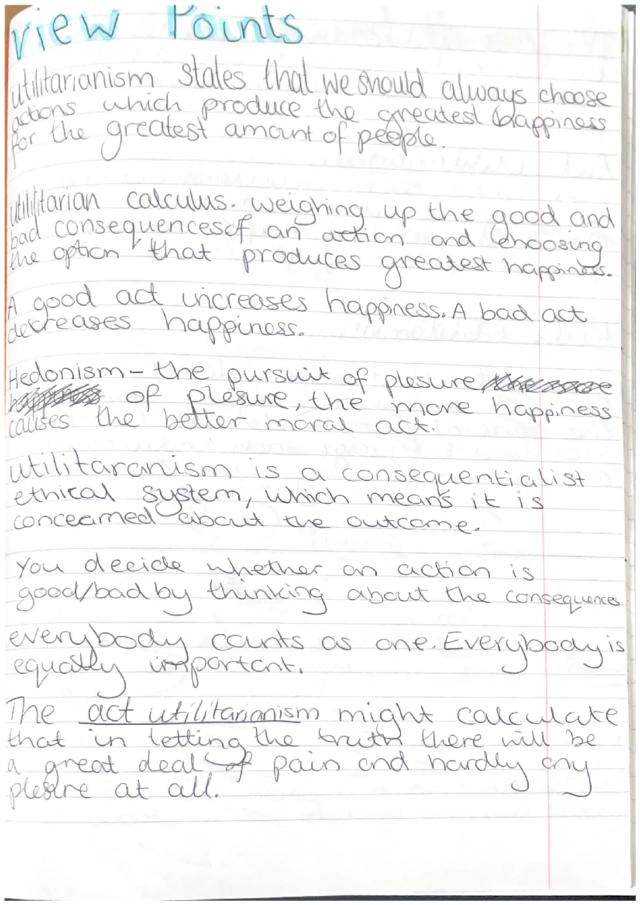 View Points
utilitarianism states that we should always choose
actions which produce the greatest happiness
for the greatest amount of people.
utilitarian calculus. weighing up the good and
bad consequences of an action and choosing
the option that produces greatest happiness.
A good act increases happiness. A bad act
decreases happiness.
Hedonism - the pursuit of plesure
of plesure, the more happiness
causes the better moral act.
utilitaranism is a consequentialist
ethical system, which means it is
concearned about the outcome.
You decide whether an action is
good/bad by thinking about the consequences
everybody counts as one. Everybody is
equally important.
The act utilitarianism might calculate
that in letting the truth there will be
a great deal of pain and hardly any
plesure at all.